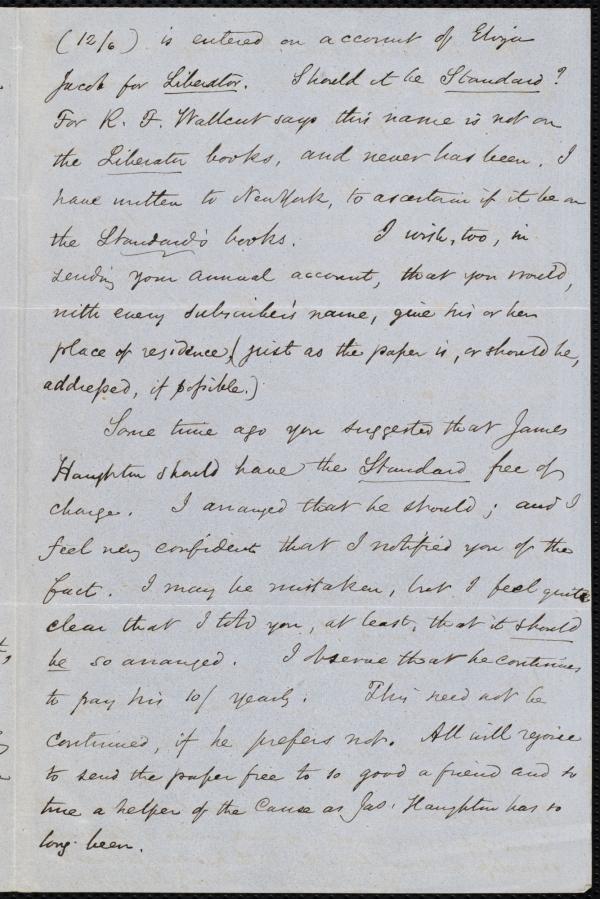 (12/6) is entered on account of Eliza
Jacob for Liberator. Should it be Standard?
For R. F. Wallcut says this name is not on
the Liberator books, and never has been. I
have written to New York, to ascertain if it be on
the Standard's books. I wish, too, in
sending your annual account, that you would,
with every subscriber's name, give his or her
place of residence, (just as the paper is, or should be,
addressed, if possible.)
Some time ago you suggested that James
Haughton should have the Standard free of
charge. I arranged that he should; and I
feel very confident that I notified you of the
fact. I may be mistaken, but I feel quite
clear that I told you, at least, that it should
be so arranged. I observe that he continues
to pay his 10/ yearly. This need not be
continued, if he prefers not. All will rejoice
to send the paper free to so good a friend and so
true a helper of the Cause as Jas. Haughton has so
long been.